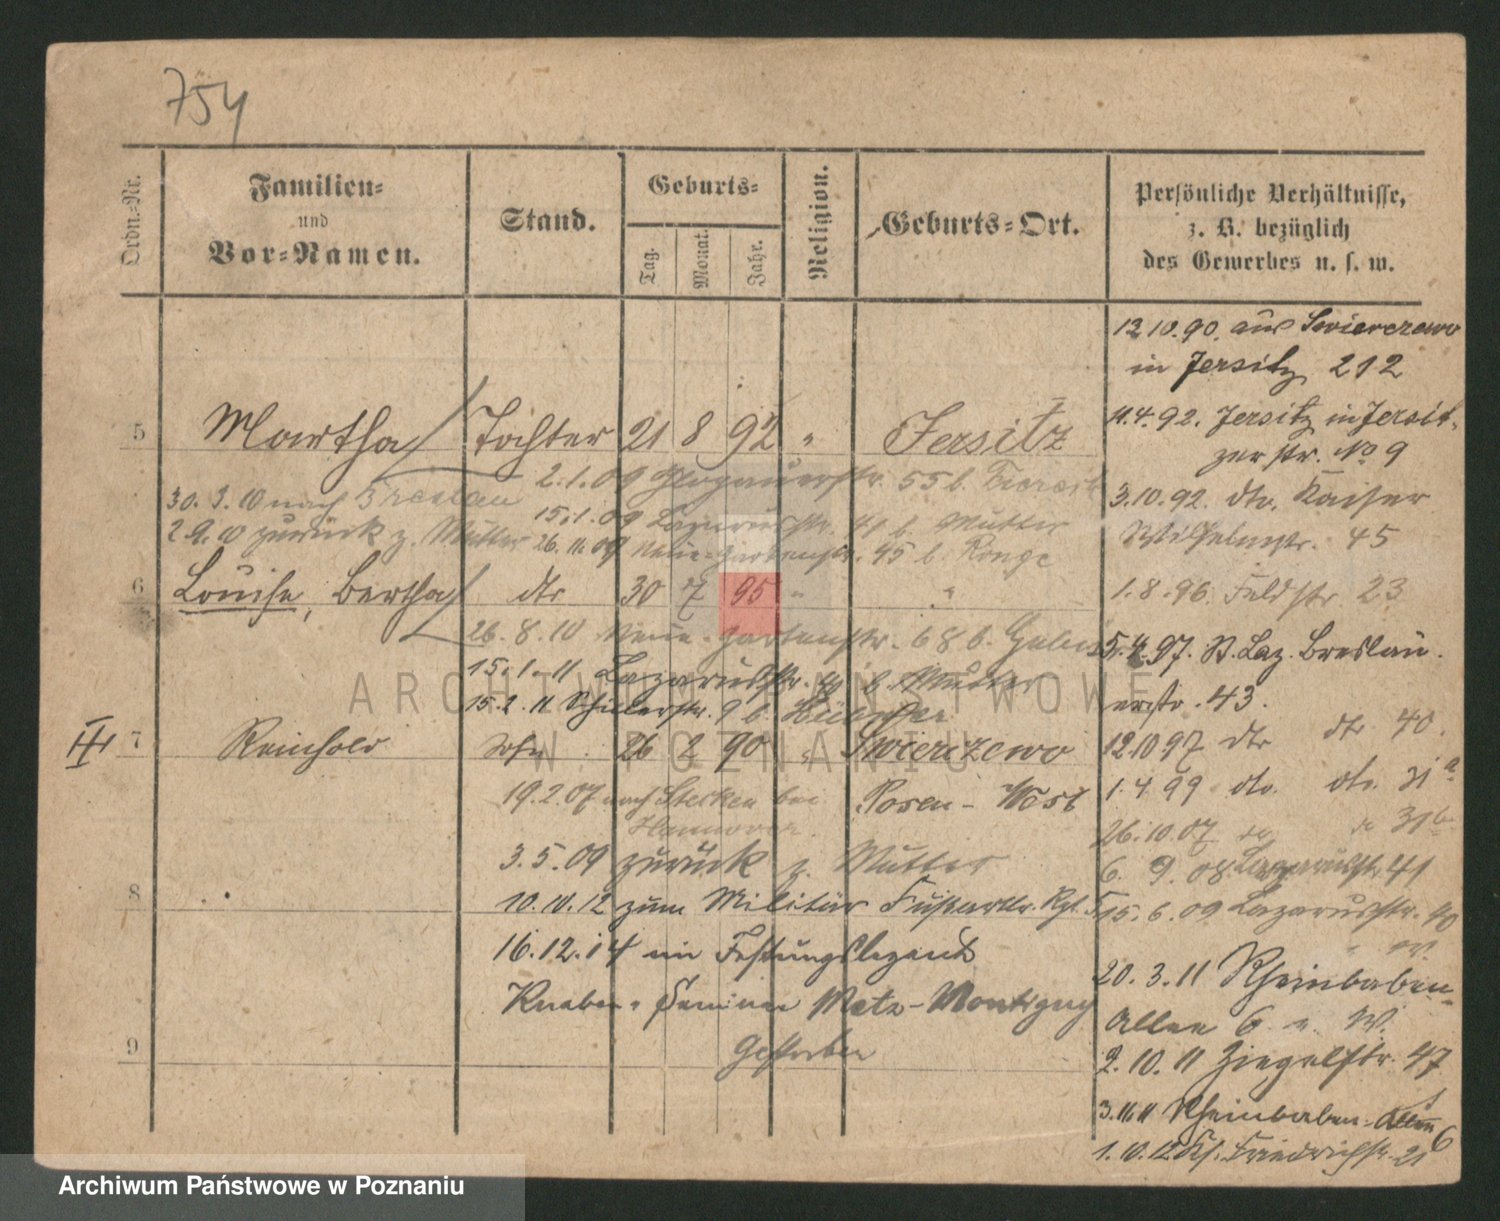 754
Ordn.-Nr.
Familien-
und
Vor-Namen.
Stand.
Geburts-
Tag.
Monat.
Jahr.
Religion.
Geburts-Ort.
Persönliche Verhältnisse,
z. B. bezüglich
des Gewerbes u. s. w.
5 Martha Tochter 21 8 92 " Jersitz
2.1.09 Glogauerstr. 55 b.
30.3.10 nach Breslau
15.1.09 Lazarusstr. 41 b. Mutter
2.9.10 zurück z. Mutter
26.11.09 Neue-Gartenstr. 45 b. Ronge
6 Louise, Bertha dto 30 7 95 " "
26.8.10 Neue-Gartenstr. 68 b.
15.1.11 Lazarusstr. 40 b. Mutter
15.2.11 Schulerstr. 9 b.
III 7 Reinhold Sohn 26 2 90 " Swierczewo
Posen-West
19.2.07 nach Stelken bei
Hannover.
3.5.09 zurück z. Mutter
8 10.10.12 zum Militär Fußartlr. Rgt.
16.12.14 im Festungslazarett
Knaben-Seminar Metz-Montigny
9 Gestorben
12.10.90. aus Swierczewo
in Jersitz 212
11.4.92. Jersitz in Jersit-
zerstr. No 9
3.10.92. dto. Kaiser
Wilhelmstr. 45
1.8.96. Feldstr. 23
5.4.97. St. Laz. Breslau.
erstr. 43.
12.10.97 dto dto 40.
1.4.99 dto. dto. 31a
26.10.07 31b
6.9.08 Lazarusstr. 41
15.6.09 Lazarusstr. 40
W.
20.3.11 Rheinbaben-
Allee 6 W.
2.10.11 Ziegelstr. 47
3.11.11 Rheinbaben-Allee 6
1.10.12 Kl. Friedrichstr. 21
ARCHIWUM PAŃSTWOWE
W POZNANIU
Archiwum Państwowe w Poznaniu